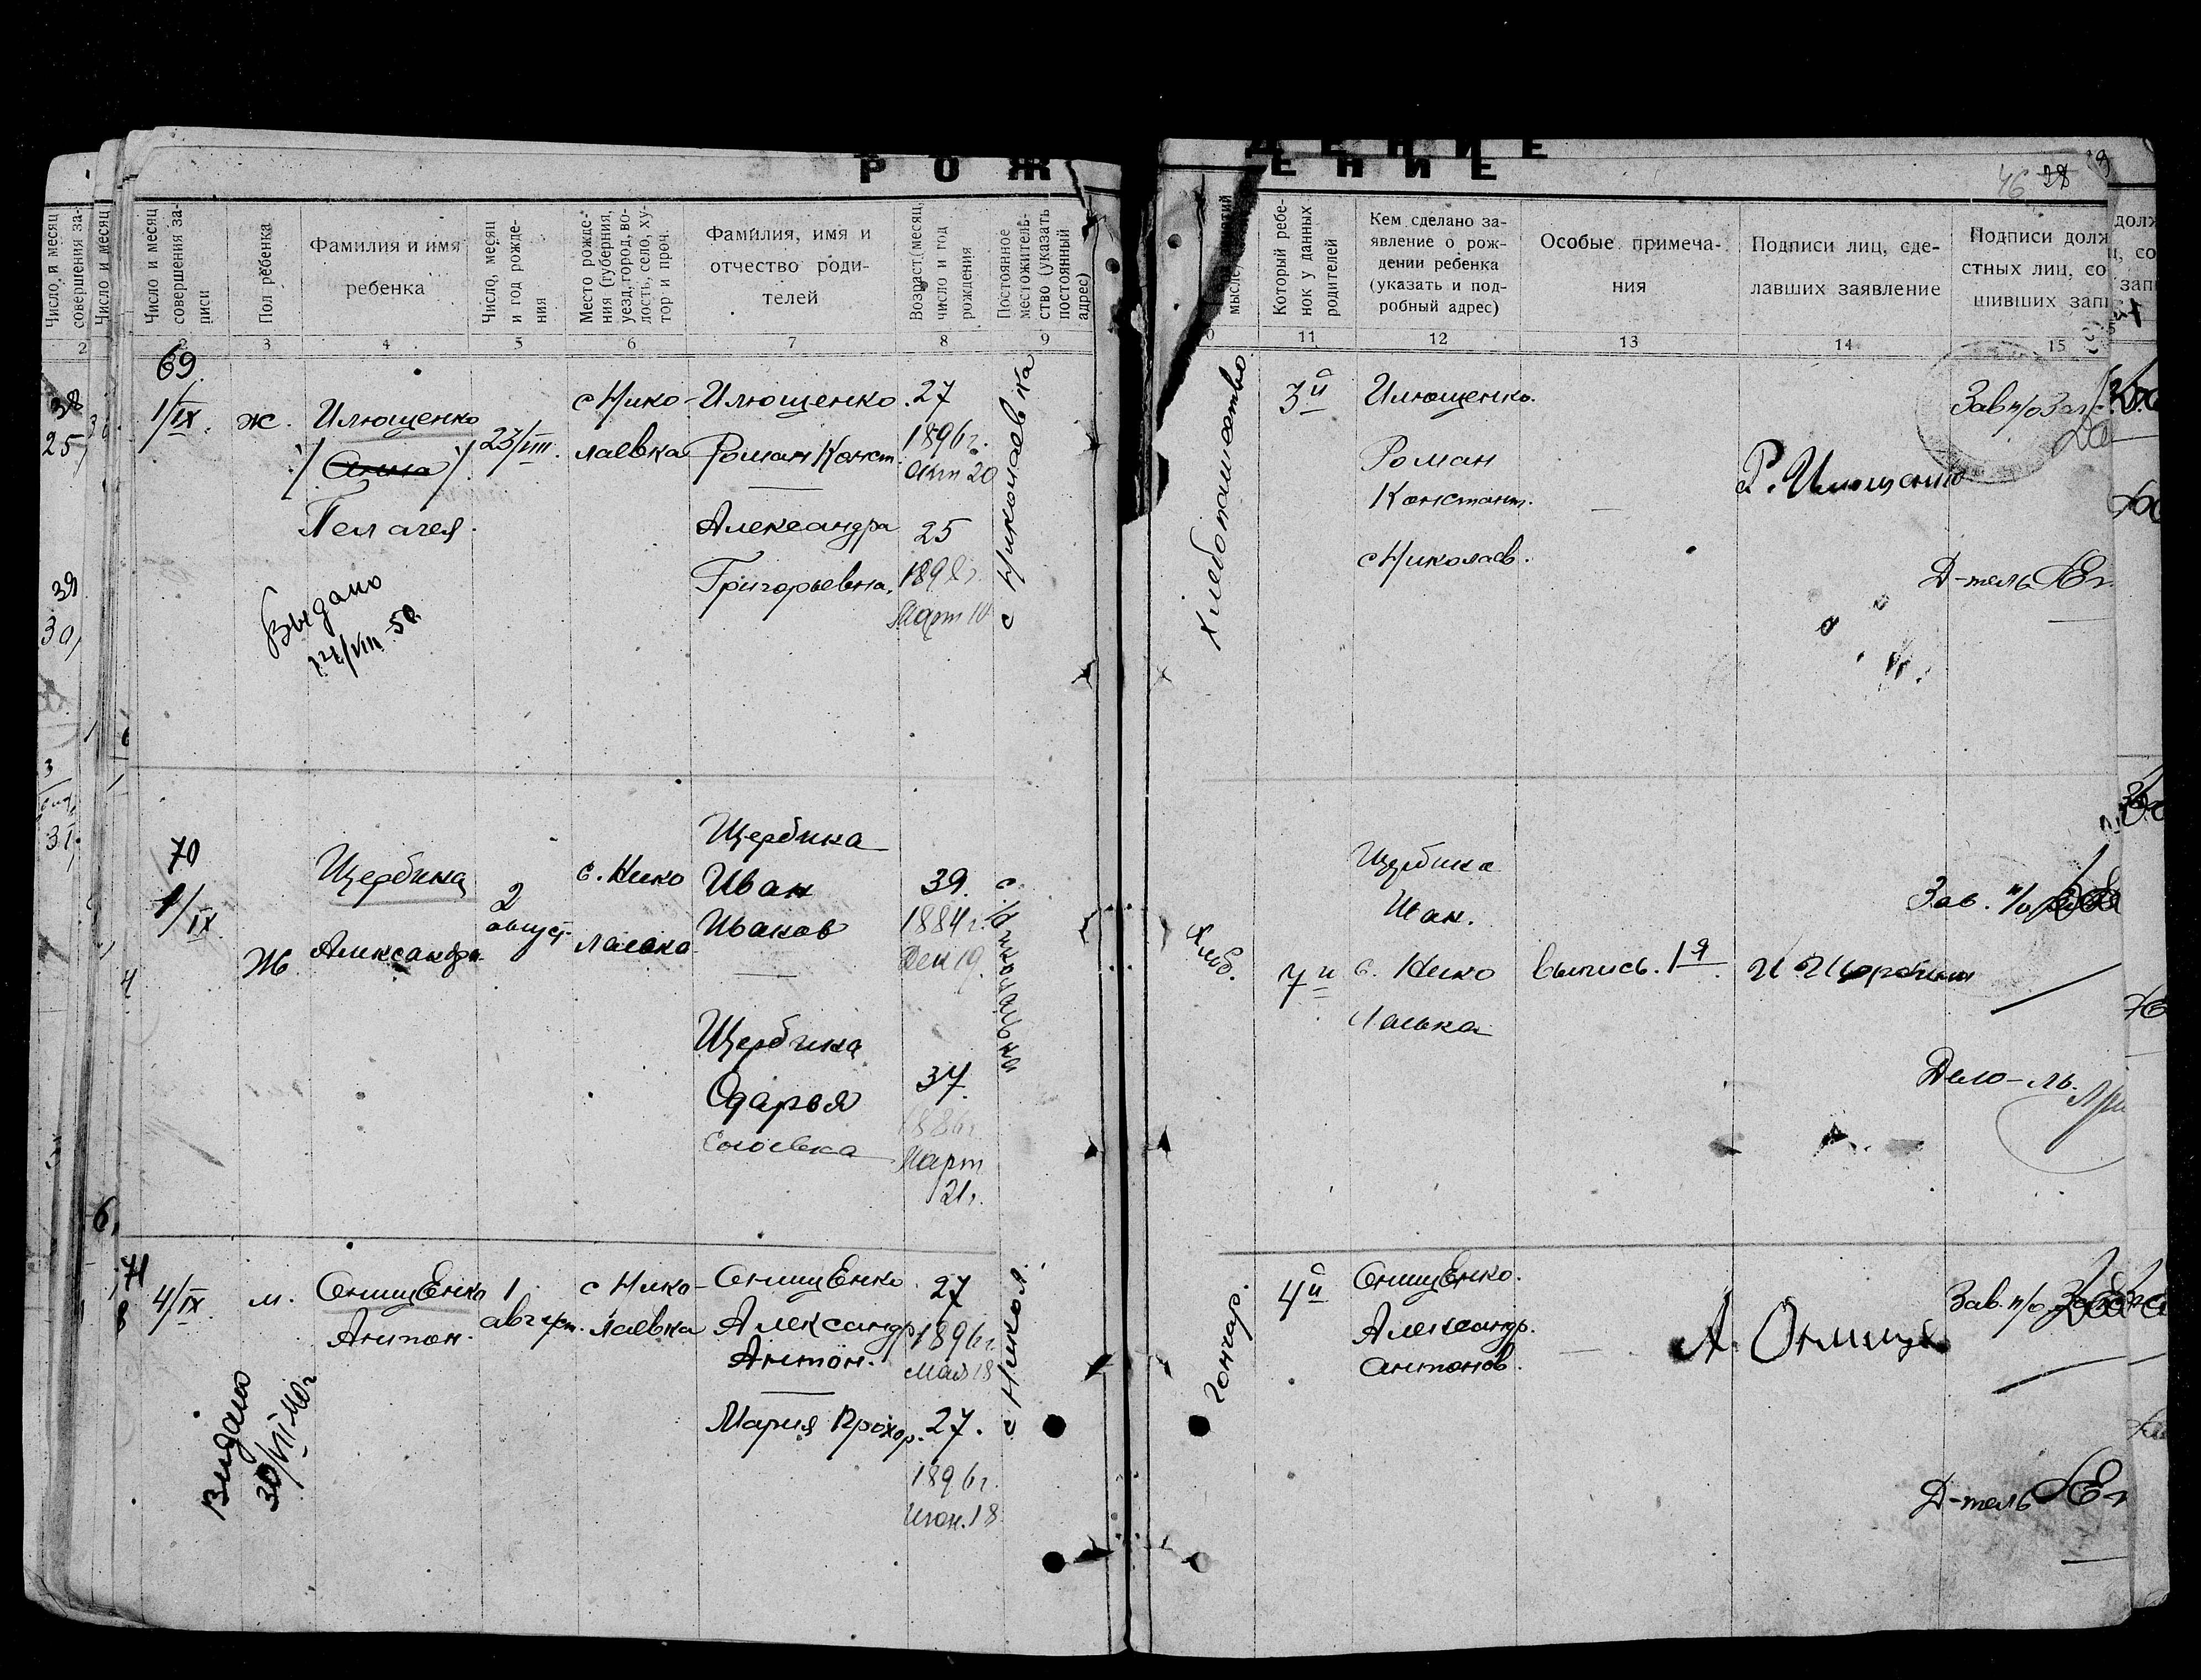 РОЖ
ДЕНИЕ
ЕНИЕ
46 38
Число и месяц совершения за-
Число и месяц
Число и месяц
совершения за-
писи
Пол ребенка
Фамилия и имя
ребенка
Число, месяц
и год рожде-
ния
Место рожде-
ния (губерния,
уезд, город, во-
лость, село, ху-
тор и проч.
Фамилия, имя и
отчество роди-
телей
Возраст (месяц,
число и год
рождения
Постоянное
местожитель-
ство (указать
постоянный
адрес)
Который ребе-
нок у данных
родителей
Кем сделано за-
явление о рож-
дении ребенка
(указать и под-
робный адрес)
Особые примеча-
ния
Подписи лиц, сде-
лавших заявление
Подписи долж
стных лиц, со
шивших запи
2 3 4 5 6 7 8 9 11 12 13 14 15
69
1/IX.
ж.
Илющенко
Анна
Пелагея.
23/VIII.
с Нико-
лаевка
Илющенко.
Роман Конст.
Александра
Григорьевна.
27
1896 г.
Окт 20
25
1898 г.
Март 10
с Николаевка
Хлебопашество
3й
Илющенко.
Роман
Констант.
с Николаев.
Р. Илющенко
Зав п/о Заг
Д-тель
Выдано
14/VIII-50.
70
1/IX
Ж
Щербина
Александра
2
август
с. Нико
лаевка
Щербина
Иван
Иванов
39.
1884 г.
Дек 19.
Щербина
Одарья
37.
1886 г.
Март
21 г.
Хлеб.
7й
Щербина
Иван.
с. Нико
лаевка
выпись. 1я
И Щербина
Зав. п/о
Дело-ль.
71
4/IX
м.
Онищенко
Антон.
1
август.
с Нико-
лаевка
Онищенко
Александр
Антон.
Мария Прохор.
27
1896 г.
Мая 18
27.
1896 г.
Июн. 18
с Никол.
Гончар.
4й
Онищенко.
Александр.
Антонов.
А. Онищ
Зав. п/о
Д-тель
Видано
30/VII 40 г